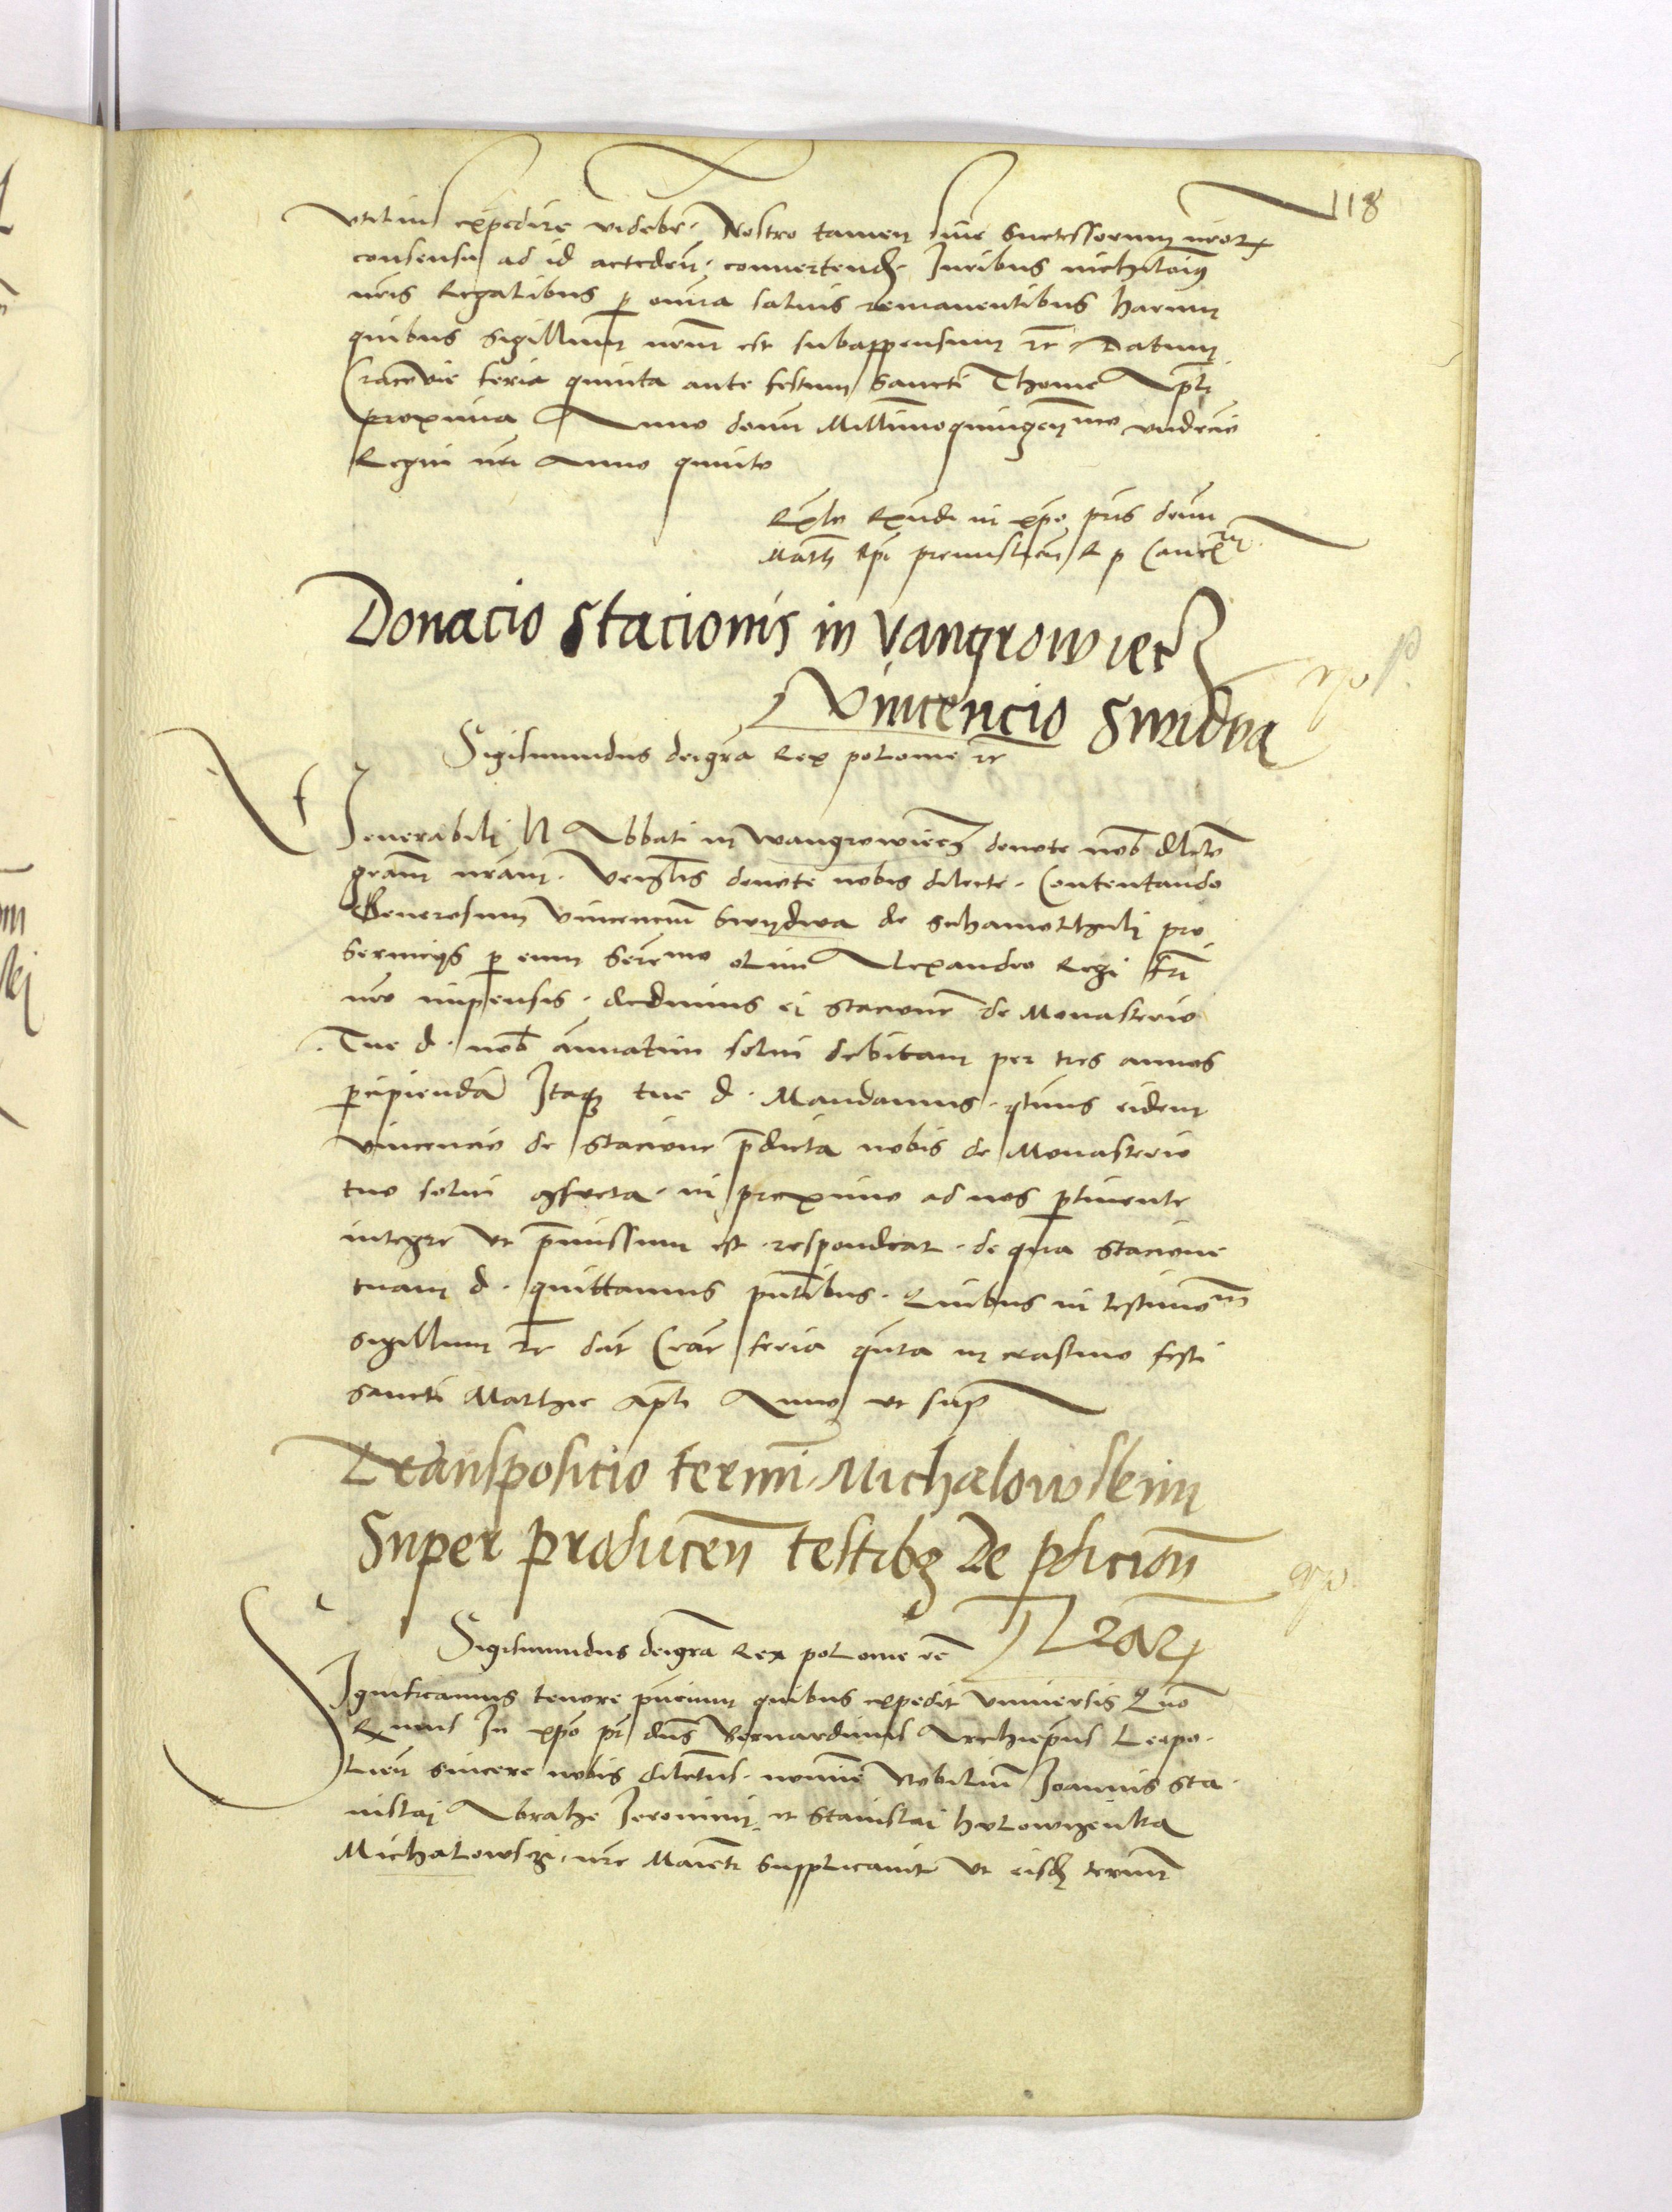 118
vtilius expedire videbr̃. Nostro tamen siue Successorum nr̃or̃
consensu ad id acceden̄. conuertend̄. Iuribus nichilom̄
nr̃is Regalibus p̱ om̄ia saluis remanentibus harum
quibus Sigillum nr̃m est subappensum r̃c Datum
Cracovie feria quinta ante festum Sancti Thome Ap̃li
proxima Anno domī Millimoquingen̄mo vndeciō
Regni nr̃i Anno quinto
Rl̃o Rṽndi in xp̃o pr̃is domī
Math̄ Ep̃i premislien̄ R p Cancr̃ij
Donacio stacionis in Vangrowiecz
Vincencio Swidva
Sigismundus deigr̃a Rex polonie r̃c
Venerabili N Abbati in Wangrowiecz deuote nob̃ dilcto
gr̃am nr̃am. Ven̄lis deuote nobis dilecte. Contentando
Generosum Vincenciū Swydwa de Schamotthuli pro
Seruicijs p̱ eum Serēmo olim Alexandro Regi fr̃i
nr̃o impensis. dedimus ei Stacionē de Monasterio
Tue d. nob̃ annuatim solui debitam per tres annos
p̱cipiendā Itaq̃ tue d. Mandamus. qt̃nus eidem
Vincencio de Stacione p̄dicta nobis de Monasterio
tuo solui 9sueta. in proximo ad nos p̱tinente
integre vt p̄missum est. respondeat. de qua Stacione
tuam d. quittamus pn̄tibus. Quibus in testimom̄
sigillum r̃c dat̄ Crac̄ feria qn̄ta in crastino festi
Sancti Mathie Ap̃li Anno vt sup̄
Transposicio termī Michalowskim
Super producen̄ testibz De pdicion̄
Lr̃ar̃
Sigismundus deigr̃a Rex polonie r̃c
Significamus tenore pn̄cium quibus expedit vniuersis Quō
Rṽens In xp̃o pr̃ dn̄s Bernardinus Archiep̃us Leopo.
lien̄ sincere nobis dilectus. nomīe Nobiliū Ioannis Sta.
nislaj Abrahe Ieronimi et Stanislai holowczenka
Michalowszi. nr̃e Maiestī Supplicauit vt eisd̄ termm̄